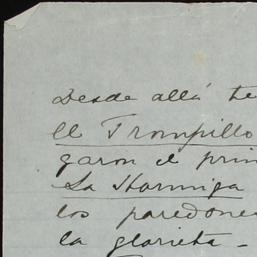 Desde allá te
El Trompillo
garon el prin
La Hormiga
los paredone
la glorieta -